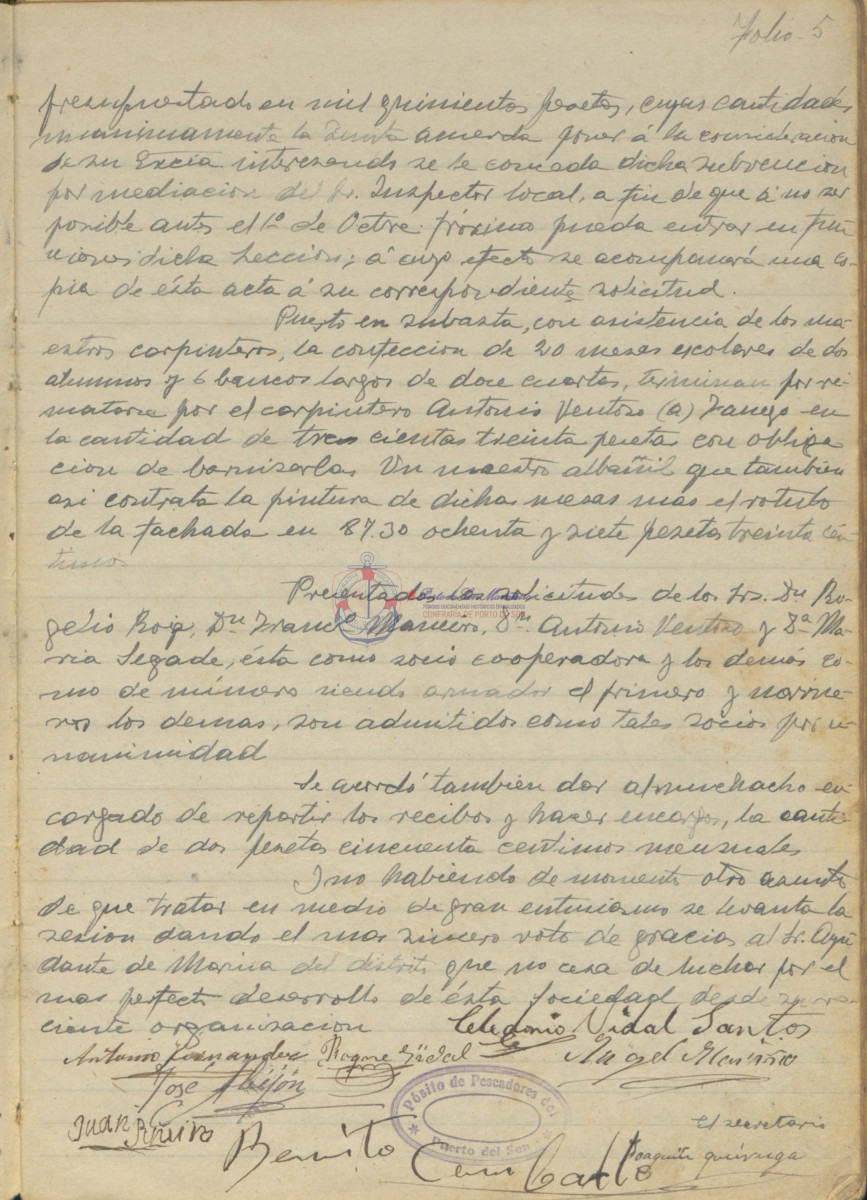 Folio-5
presupuestado en mil quinientas pesetas, cuyas cantidades
unanimamente la Junta acuerda poner á la consideracion
de su Excia interesando se le conceda dicha subvencion
por mediacion del Sr. Inspector local, a fin de que á no ser
posible antes el 1º de Octre. próximo pueda entrar en fun
ciones dicha Seccion; á cuyo efecto se acompanará una co-
pia de ésta acta á su correspondiente solicitud.
Puesto en subasta, con asistencia de los ma-
estros carpinteros, la confeccion de 20 mesas escolares de dos
alumnos y 6 bancos largos de doce cuartas, terminan por re-
matarse por el carpintero Antonio Ventoso (a) Fanego en
la cantidad de tres cientas treinta pesetas con obliga
cion de barnizarlas Un maestro albañil que tambien
asi contrata la pintura de dichas mesas mas el rotulo
de la fachada en 87.30 ochenta y siete pesetas treinta cén-
timos.
Presentadas las solicitudes de los Srs. Dn Ro-
gelio Roig, Dn Francº Maneiro, Dn Antonio Ventoso y Dª Ma
ria Segade, ésta como socio cooperadora y los demás co-
mo de número siendo armador el primero y marine-
ros los demas, son admitidos como tales socios por u-
nanimidad
Se acordó tambien dar al muchacho en
cargado de repartir los recibos y hacer encargos, la canti
dad de dos pesetas cincuenta centimos mensuales
I no habiendo de momento otro asunto
de que tratar en medio de gran entusiasmo se levanta la
sesion dando el mas sincero voto de gracias al Sr. Ayu
dante de Marina del distrito que no cesa de luchar por el
mas perfecto desarrollo de ésta Sociedad desde su re-
ciente organizacion Celedonio Vidal Santos
Antonio Fernandez Roque Vidal Angel Mariño
José Abijón
Pósito de Pescadores del
Puerto del Son
Juan
El secretario
Benito
Joaquin
CONFRARÍA DE PORTO DO SON